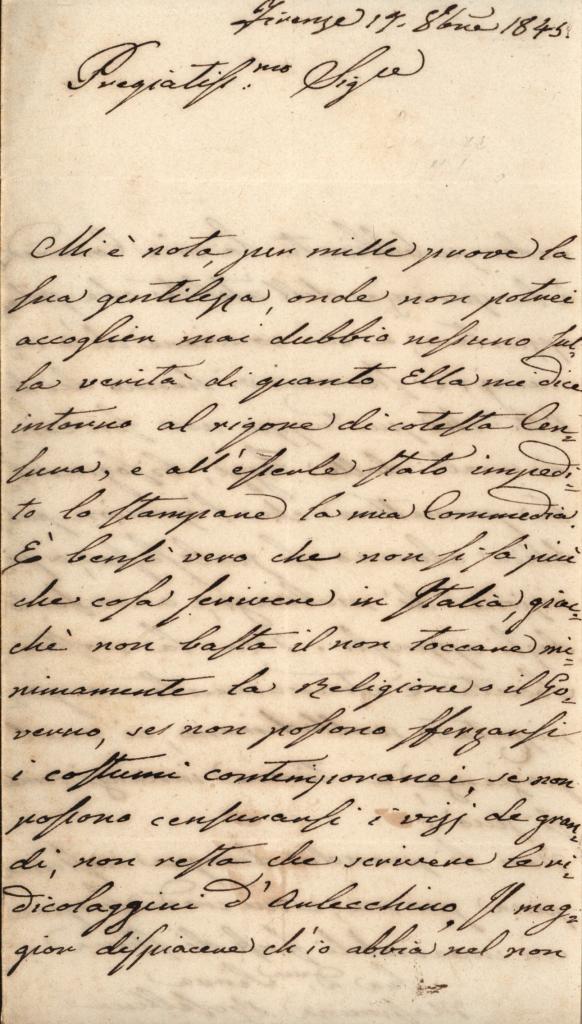 Firenze 19. 8bre 1845.
Pregiatiss.mo Sigre
Mi è nota, per mille prove la
sua gentilezza, onde non potrei
accoglier mai dubbio nessuno sul-
la verità di quanto Ella mi dice
intorno al rigore di cotesta Cen-
sura, e all'esserle stato impedi-
to lo stampare la mia Commedia.
È bensì vero che non si sà più
che cosa scrivere in Italia, giac-
chè non basta il non toccare mi-
nimamente la Religione o il Go-
verno, se non possono sferzarsi
i costumi contemporanei, se non
possono censurarsi i vizj de gran-
di, non resta che scrivere le ri-
dicolaggini d'Arlecchino. Il mag-
gior dispiacere ch'io abbia nel non